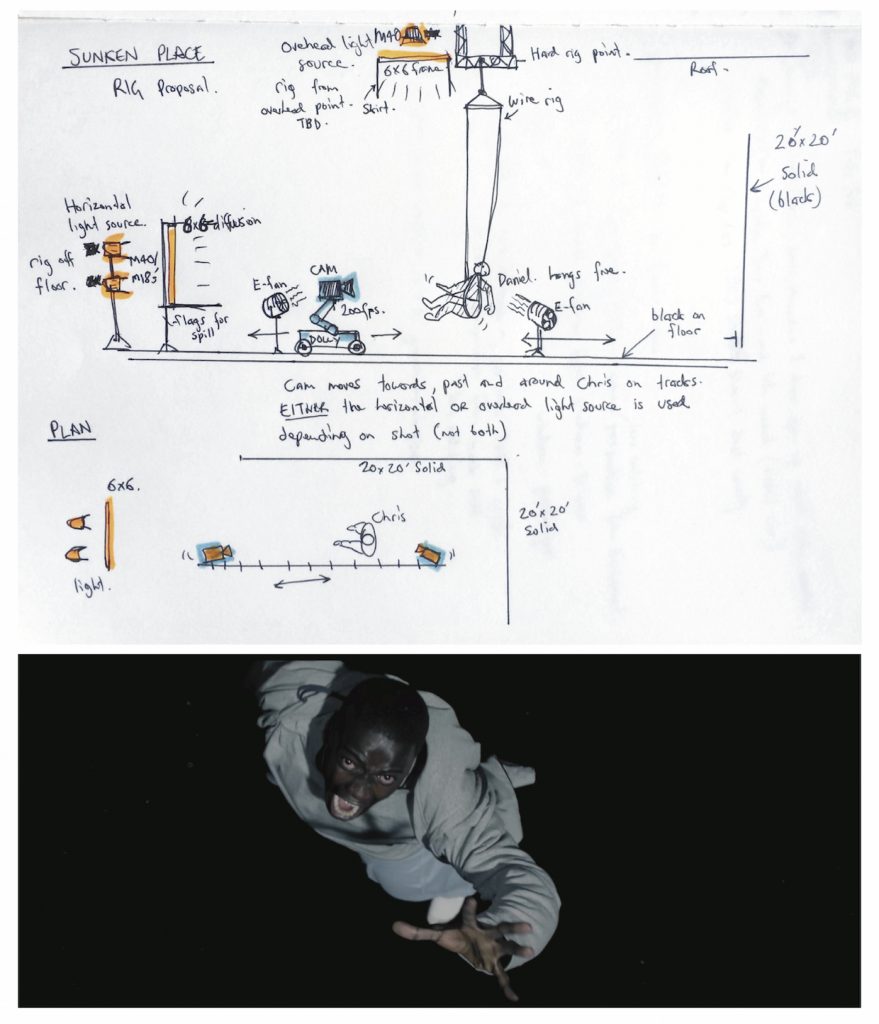 SUNKEN PLACE
RIG Proposal.
Overhead light
source.
M40
6x6 frame
rig from
overhead point.
TBD.
Skirt.
Hard rig point.
Roof.
Wire rig
20'x20'
Solid
(black)
Horizontal
light source.
rig off
floor.
M40/
M18s
diffusion
flags for
spill
E-fan
CAM
200fps.
DOLLY
Daniel. Hangs free.
E-fan
black on
floor
Cam moves towards, past and around Chris on tracks.
EITHER the horizontal or overhead light source is used
depending on shot (not both)
PLAN
20x20' Solid
6x6.
light.
Chris
20'x20'
Solid